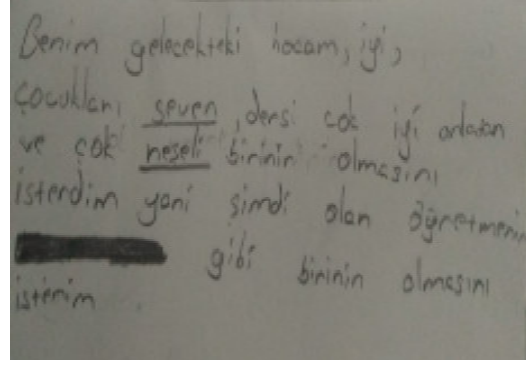 Benim gelecekteki hocam, iyi,
çocukları seven, dersi çok iyi anlatan
ve çok neşeli birinin olmasını
isterdim yani şimdi olan öğretmenin
gibi birinin olmasını
isterim